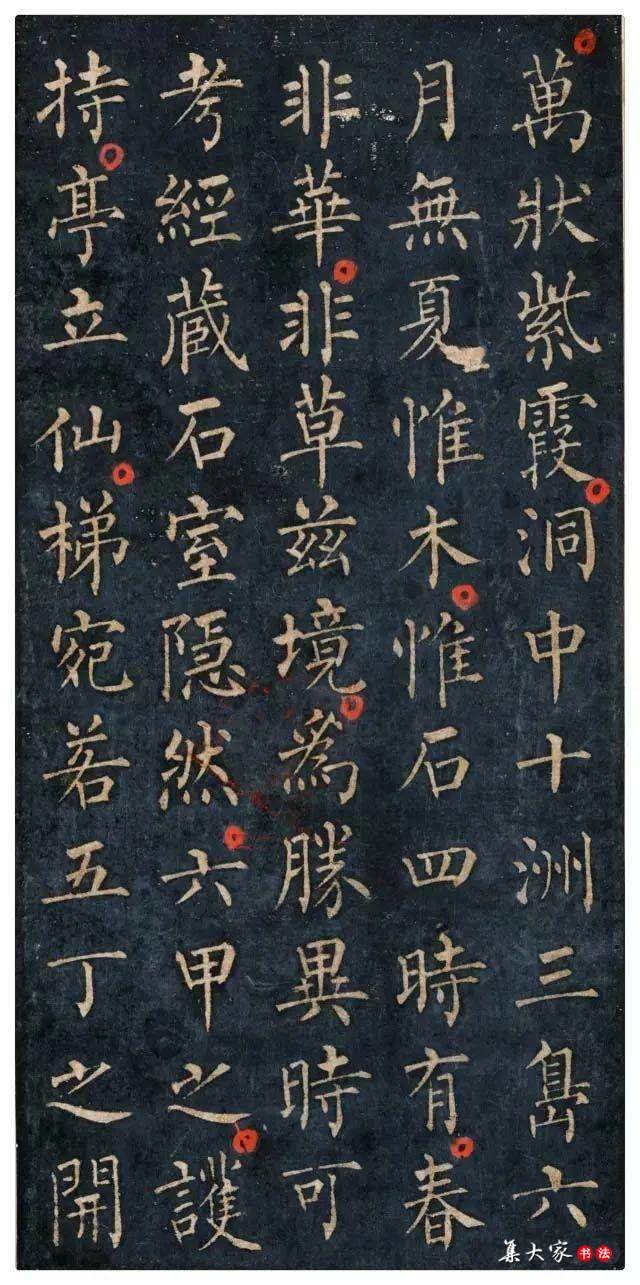 萬狀紫霞洞中十洲三島六
月無夏惟木惟石四時有春
非華非草茲境爲勝異時可
考經藏石室隱然六甲之護
持亭立仙梯宛若五丁之開
集大家书法